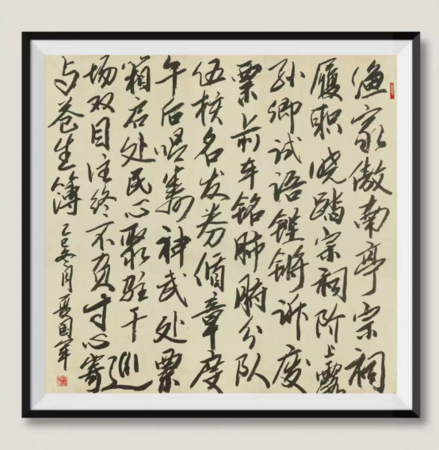 渔家傲南亭宗祠
履职晓踏宗祠阶上露
孙卿试语铿锵诉度
票前车铭肺腑分队
伍核名发券循章度
午后唱筹神武处票
箱启处民心聚驻干巡
场双目注终不负寸心寄
与苍生簿乙巳冬月国军